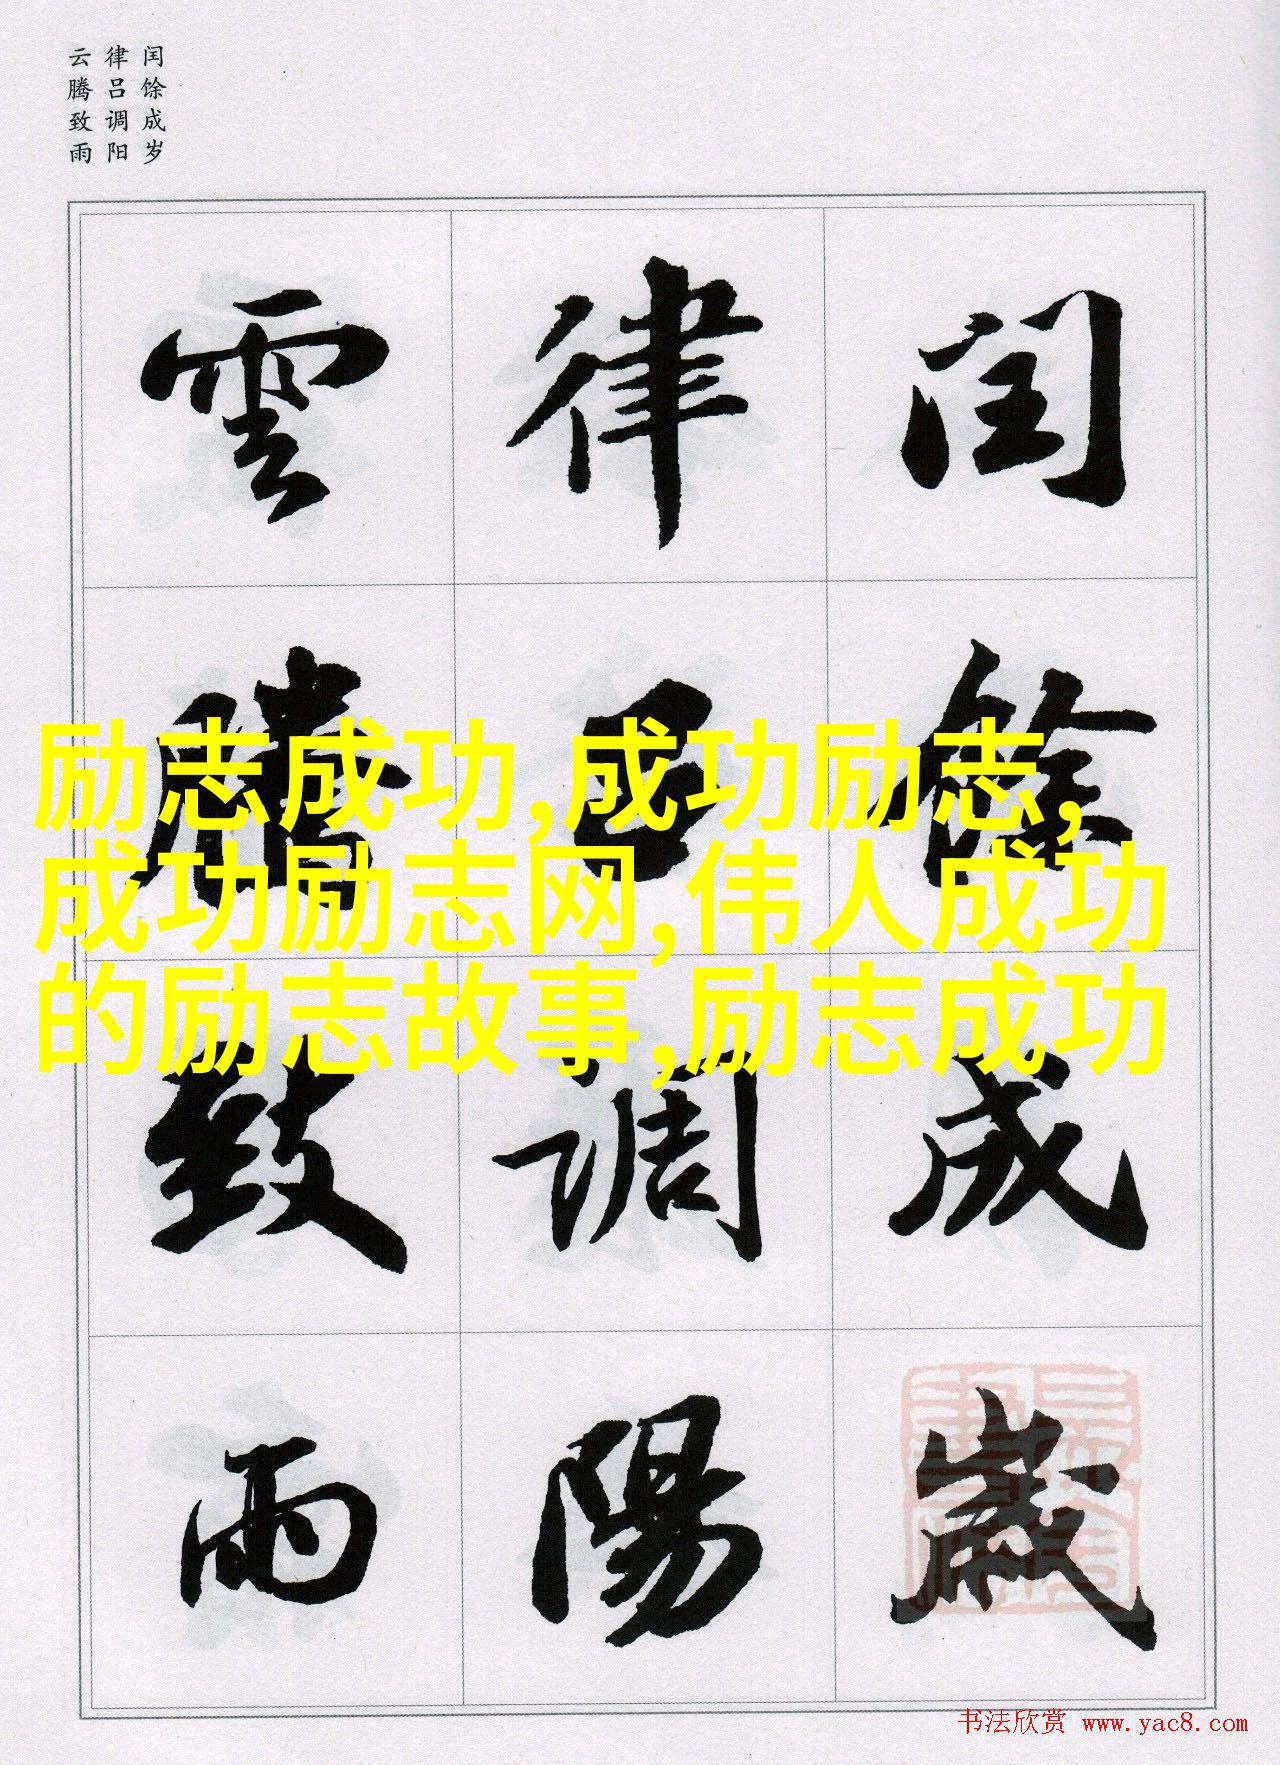 闰馀成岁
律吕调阳
云腾致雨
閏餘成歲
律吕調陽
雲騰致雨
励志成功,成功励志,
成功励志网,伟人成功
的励志故事,励志成功
书法欣赏 www.yac8.com